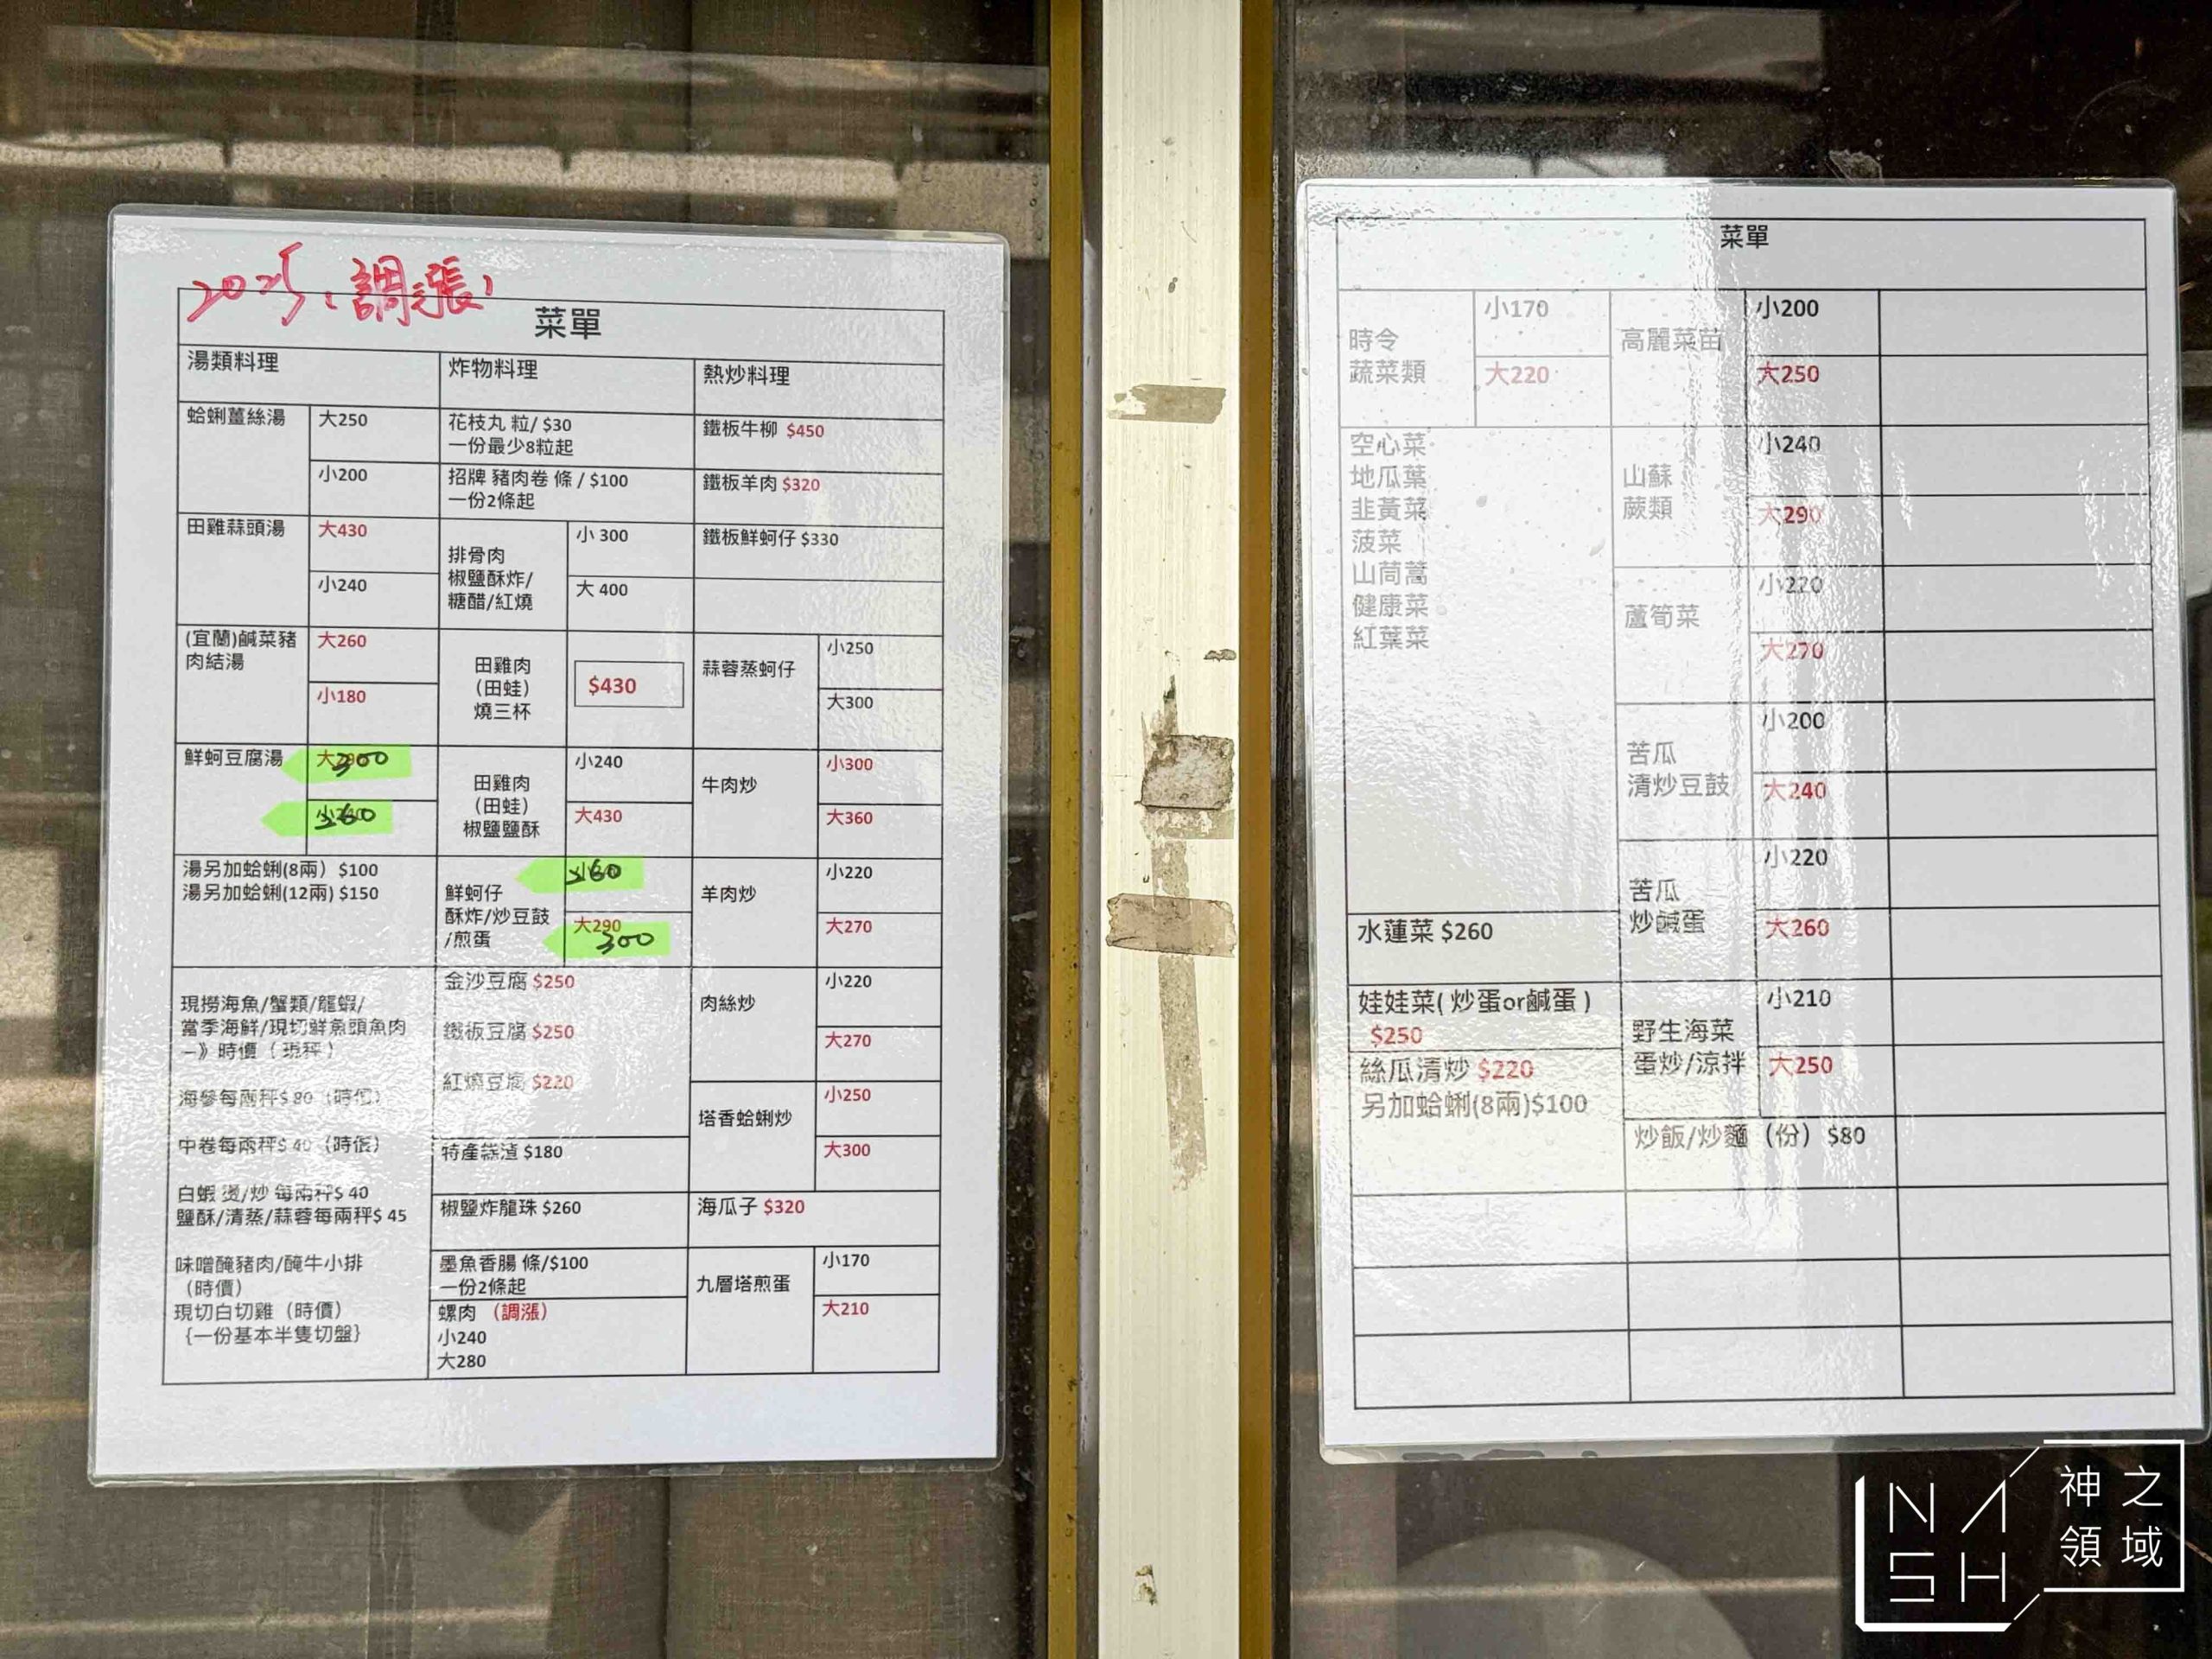 2025、調漲、
菜單
湯類料理
炸物料理
熱炒料理
蛤蜊薑絲湯
大250
小200
花枝丸 粒/ $30
一份最少8粒起
招牌 豬肉卷 條 / $100
一份2條起
鐵板牛柳 $450
鐵板羊肉 $320
田雞蒜頭湯
大430
小240
排骨肉
椒鹽酥炸/
糖醋/紅燒
小 300
大 400
鐵板鮮蚵仔 $330
(宜蘭)鹹菜豬
肉結湯
大260
小180
田雞肉
（田蛙）
燒三杯
$430
蒜蓉蒸蚵仔
小250
大300
鮮蚵豆腐湯
300
260
田雞肉
（田蛙）
椒鹽鹽酥
小240
大430
牛肉炒
小300
大360
湯另加蛤蜊(8兩）$100
湯另加蛤蜊(12兩) $150
鮮蚵仔
酥炸/炒豆鼓
/煎蛋
260
大290
300
羊肉炒
小220
大270
現撈海魚/蟹類/龍蝦/
當季海鮮/現切鮮魚頭魚肉
—》時價（ 現秤 ）
海參每兩秤$ 80（時價）
中卷每兩秤$ 40（時價）
白蝦 燙/炒 每兩秤$ 40
鹽酥/清蒸/蒜蓉每兩秤$ 45
味噌醃豬肉/醃牛小排
（時價）
現切白切雞（時價）
{一份基本半隻切盤}
金沙豆腐 $250
鐵板豆腐 $250
紅燒豆腐 $220
特產糕渣 $180
椒鹽炸龍珠 $260
墨魚香腸 條/$100
一份2條起
螺肉 （調漲）
小240
大280
肉絲炒
小220
大270
塔香蛤蜊炒
小250
大300
海瓜子 $320
九層塔煎蛋
小170
大210
菜單
時令
蔬菜類
小170
大220
高麗菜苗
小200
大250
空心菜
地瓜葉
韭黃菜
菠菜
山茼蒿
健康菜
紅葉菜
山蘇
蕨類
小240
大290
蘆筍菜
小220
大270
苦瓜
清炒豆鼓
小200
大240
苦瓜
炒鹹蛋
小220
大260
水蓮菜 $260
娃娃菜( 炒蛋or鹹蛋 )
$250
絲瓜清炒 $220
另加蛤蜊(8兩)$100
野生海菜
蛋炒/涼拌
小210
大250
炒飯/炒麵（份）$80
NASH
神之
領域